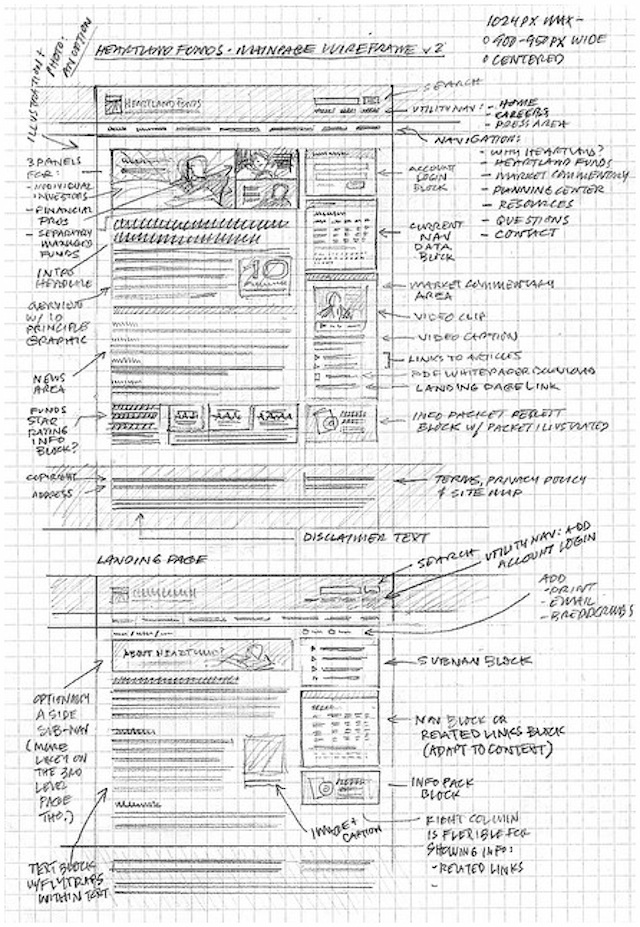 1024 PX MAX -
○ 900-950PX WIDE
○ CENTERED
ILLUSTRATION +
PHOTO:
ANIMATION
HEARTLAND FUNDS - MAINPAGE WIREFRAME v2
HEARTLAND FUNDS
SEARCH
UTILITY NAV:
- HOME
- CAREERS
- PRESS AREA
NAVIGATION:
- WHY HEARTLAND?
- HEARTLAND FUNDS
- MARKET COMMENTARY
- PLANNING CENTER
- RESOURCES
- QUESTIONS
- CONTACT
3 PANELS
FOR:
- INDIVIDUAL
INVESTORS
- FINANCIAL
PROS
- SEPARATELY
MANAGED
FUNDS
INTRO
HEADLINE
OVERVIEW
W/ 10
PRINCIPLE
GRAPHIC
10
NEWS
AREA
FUNDS
STAR
RATING
INFO
BLOCK?
COPYRIGHT
ADDRESS
ACCOUNT
LOGIN
BLOCK
CURRENT
NAV
DATA
BLOCK
MARKET COMMENTARY
AREA
VIDEO CLIP
VIDEO CAPTION
LINKS TO ARTICLES
PDF WHITEPAPER DOWNLOAD
LANDING PAGE LINK
INFO PACKET REQUEST
BLOCK W/ PACKET ILLUSTRATED
TERMS, PRIVACY POLICY
& SITE MAP
DISCLAIMER TEXT
LANDING PAGE
SEARCH
UTILITY NAV: ADD
ACCOUNT LOGIN
ADD
- PRINT
- EMAIL
- BREADCRUMBS
ABOUT HEARTLAND?
SUBNAV BLOCK
OPTIONALLY
A SIDE
SUB-NAV
(MORE
LIKELY ON
THE 3RD
LEVEL
PAGE
THO.)
NAV BLOCK OR
RELATED LINKS BLOCK
(ADAPT TO CONTEXT)
INFO PACK
BLOCK
IMAGE +
CAPTION
RIGHT COLUMN
IS FLEXIBLE FOR
SHOWING INFO:
- RELATED LINKS
-
TEXT BLOCK
W/ FLYTRAPS
WITHIN TEXT